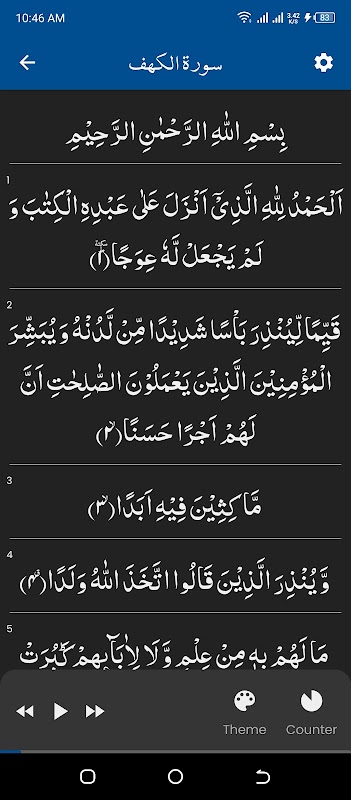 10:46 AM
3.42
K/S
83
سورة الكهف
بِسْمِ اللهِ الرَّحْمٰنِ الرَّحِيْمِ
1
اَلْحَمْدُ لِلّٰهِ الَّذِيْۤ اَنْزَلَ عَلٰى عَبْدِهِ الْكِتٰبَ وَ
لَمْ يَجْعَلْ لَّهٗ عِوَجًاؕٚ(۱)
2
قَيِّمًا لِّيُنْذِرَ بَاْسًا شَدِيْدًا مِّنْ لَّدُنْهُ وَ يُبَشِّرَ
الْمُؤْمِنِيْنَ الَّذِيْنَ يَعْمَلُوْنَ الصّٰلِحٰتِ اَنَّ
لَهُمْ اَجْرًا حَسَنًاۙ(۲)
3
مَّاكِثِيْنَ فِيْهِ اَبَدًاۙ(۳)
4
وَّ يُنْذِرَ الَّذِيْنَ قَالُوا اتَّخَذَ اللّٰهُ وَلَدًاۗ(۴)
5
مَا لَهُمْ بِهٖ مِنْ عِلْمٍ وَّ لَا لِاٰبَآىٕهِمْؕ كَبُرَتْ
Theme
Counter